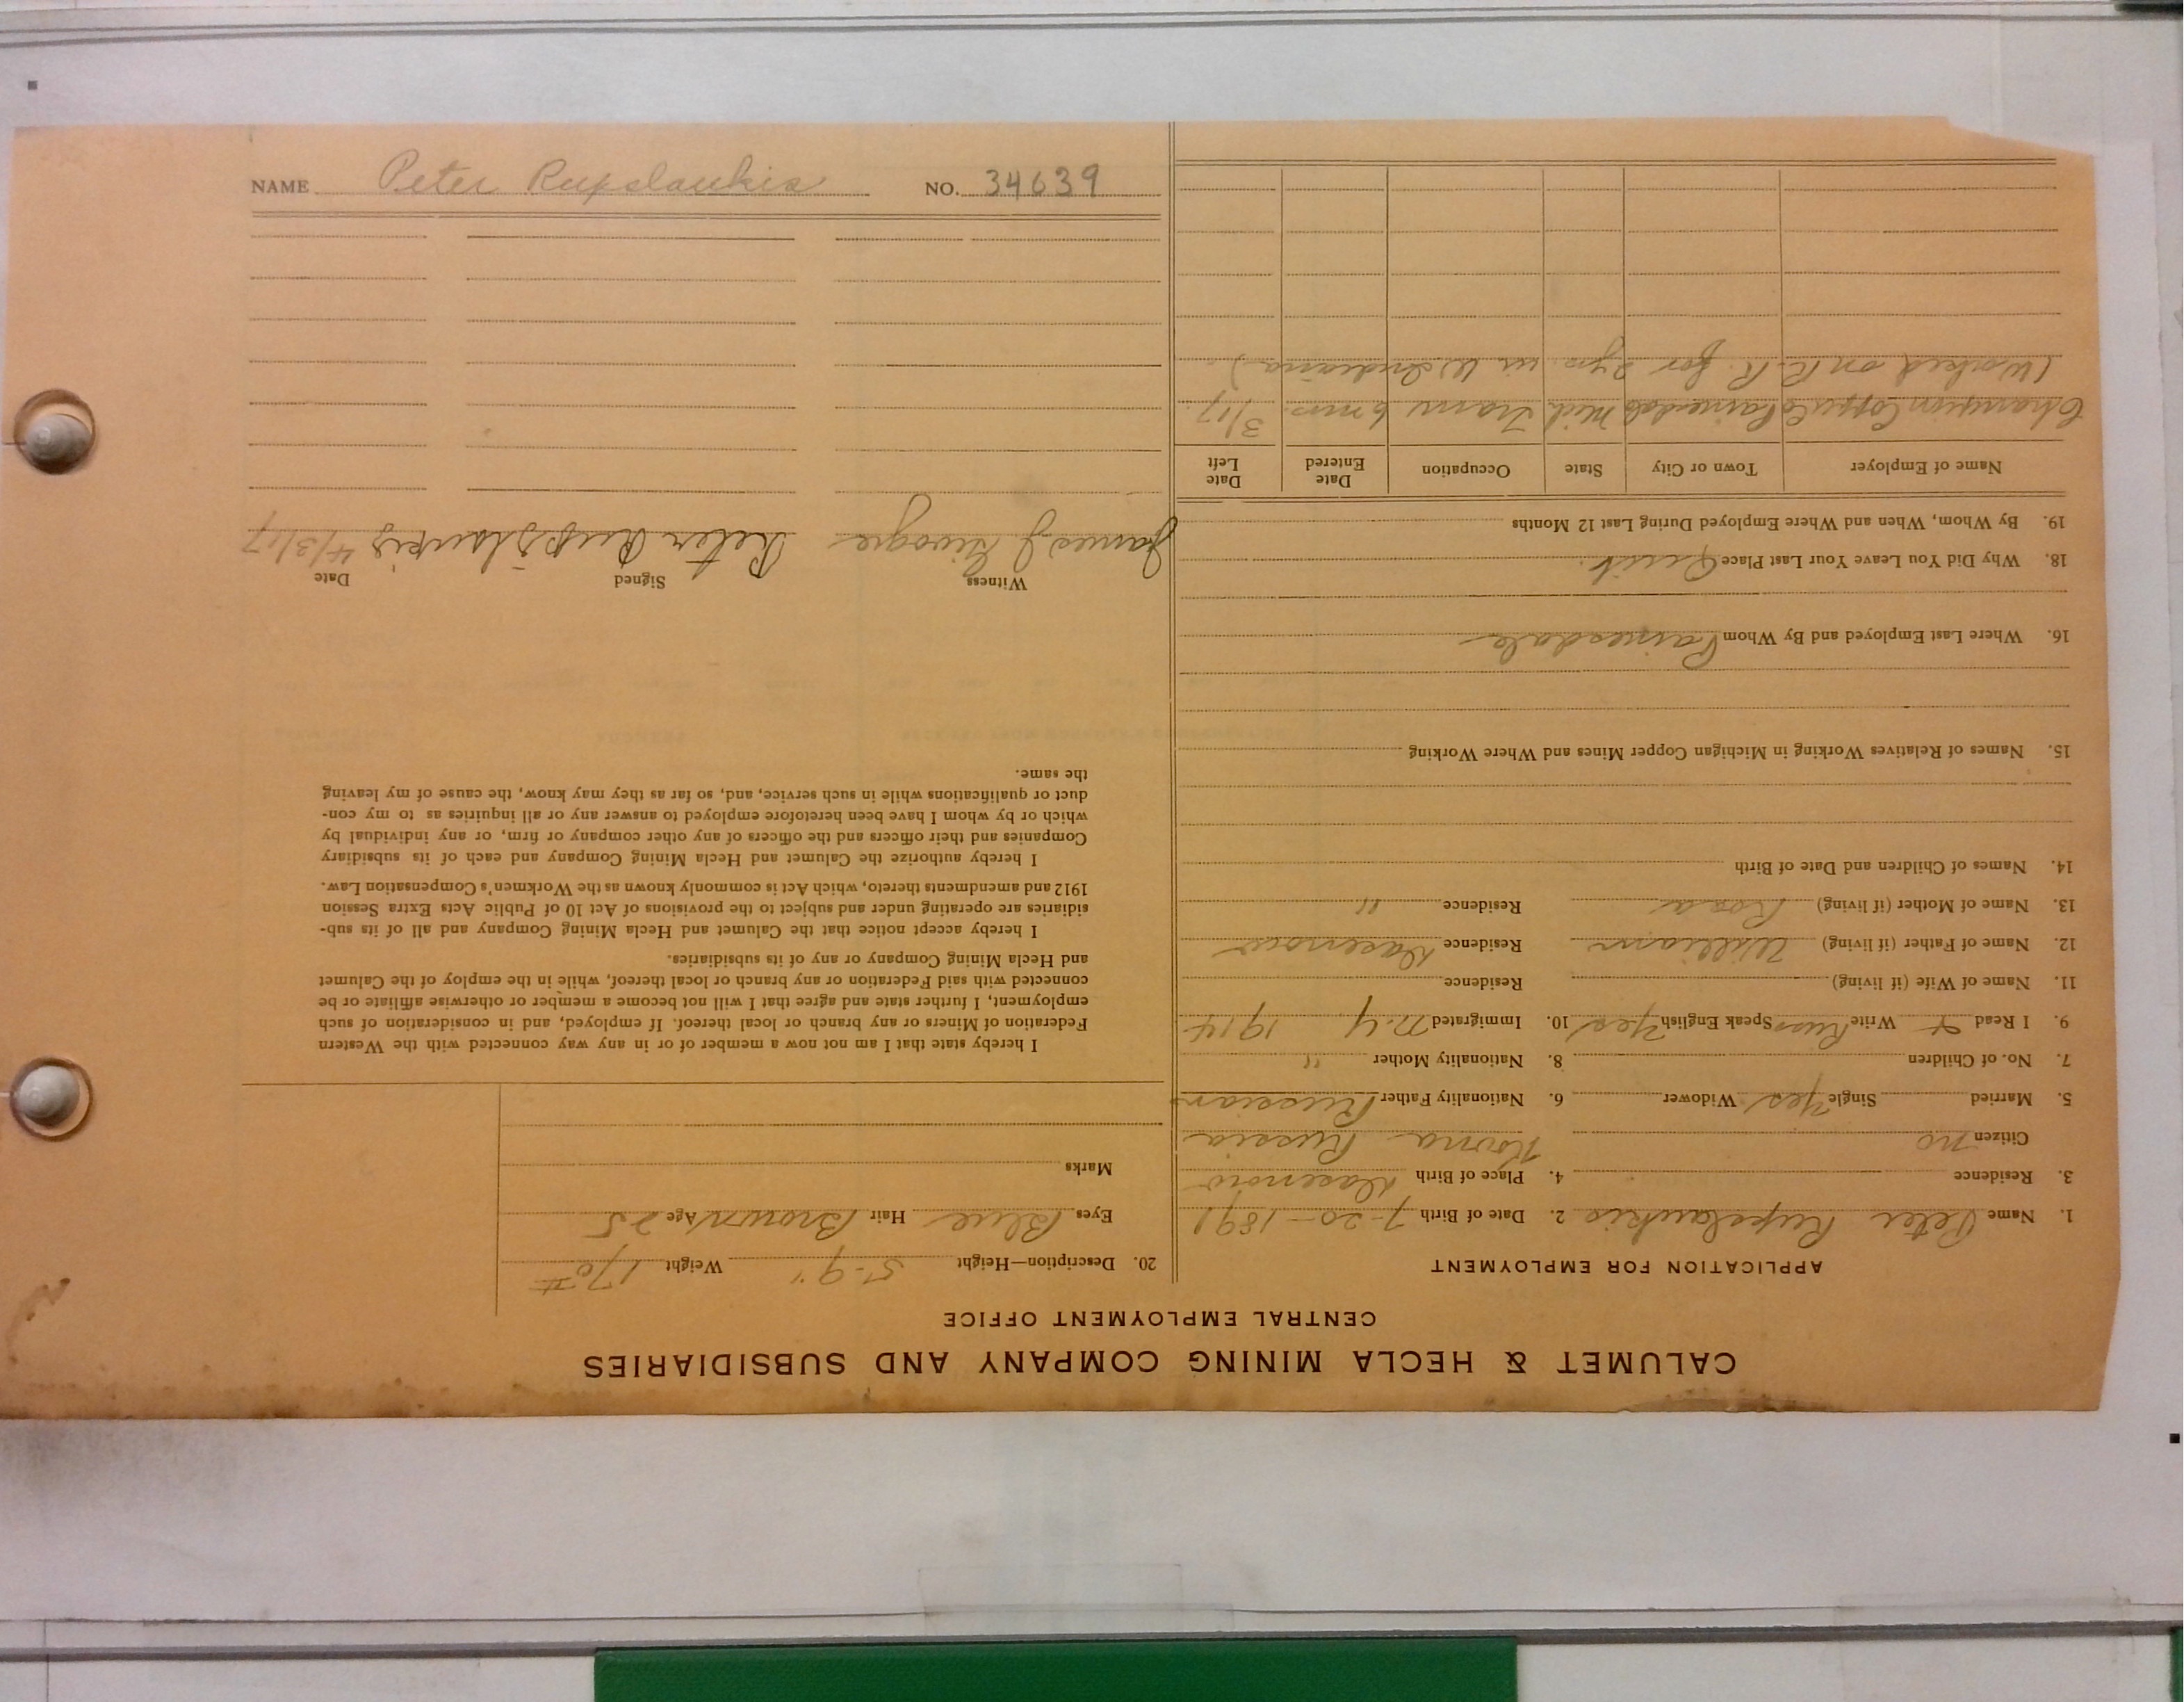 CALUMET & HECLA MINING COMPANY AND SUBSIDIARIES
CENTRAL EMPLOYMENT OFFICE
APPLICATION FOR EMPLOYMENT
1. Name Peter Rupslaukis 2. Date of Birth 7-20-1891
3. Residence 4. Place of Birth
Citizen no Kovna Russia
5. Married Single Yes Widower 6. Nationality Father Russian
7. No. of Children 8. Nationality Mother "
9. I Read & Write Russ Speak English Yes 10. Immigrated N.Y. 1914
11. Name of Wife (if living) Residence
12. Name of Father (if living) William Residence
13. Name of Mother (if living) Rosa Residence "
14. Names of Children and Date of Birth
15. Names of Relatives Working in Michigan Copper Mines and Where Working
16. Where Last Employed and By Whom Painesdale
18. Why Did You Leave Your Last Place Quit.
19. By Whom, When and Where Employed During Last 12 Months
Name of Employer Town or City State Occupation Date Entered Date Left
Champion Copper Co Painesdale Mich Tram 6 mos. 3/17.
(Worked on R.R. for 2 yrs. in W Indiana).
20. Description—Height 5-9" Weight 170#
Eyes Blue Hair Brown Age 25
Marks
I hereby state that I am not now a member of or in any way connected with the Western
Federation of Miners or any branch or local thereof. If employed, and in consideration of such
employment, I further state and agree that I will not become a member or otherwise affiliate or be
connected with said Federation or any branch or local thereof, while in the employ of the Calumet
and Hecla Mining Company or any of its subsidiaries.
I hereby accept notice that the Calumet and Hecla Mining Company and all of its sub-
sidiaries are operating under and subject to the provisions of Act 10 of Public Acts Extra Session
1912 and amendments thereto, which Act is commonly known as the Workmen's Compensation Law.
I hereby authorize the Calumet and Hecla Mining Company and each of its subsidiary
Companies and their officers and the officers of any other company or firm, or any individual by
which or by whom I have been heretofore employed to answer any or all inquiries as to my con-
duct or qualifications while in such service, and, so far as they may know, the cause of my leaving
the same.
Witness Signed Date
James J Peter Rupslaukis 4/3/17
NAME Peter Rupslaukis NO. 34639